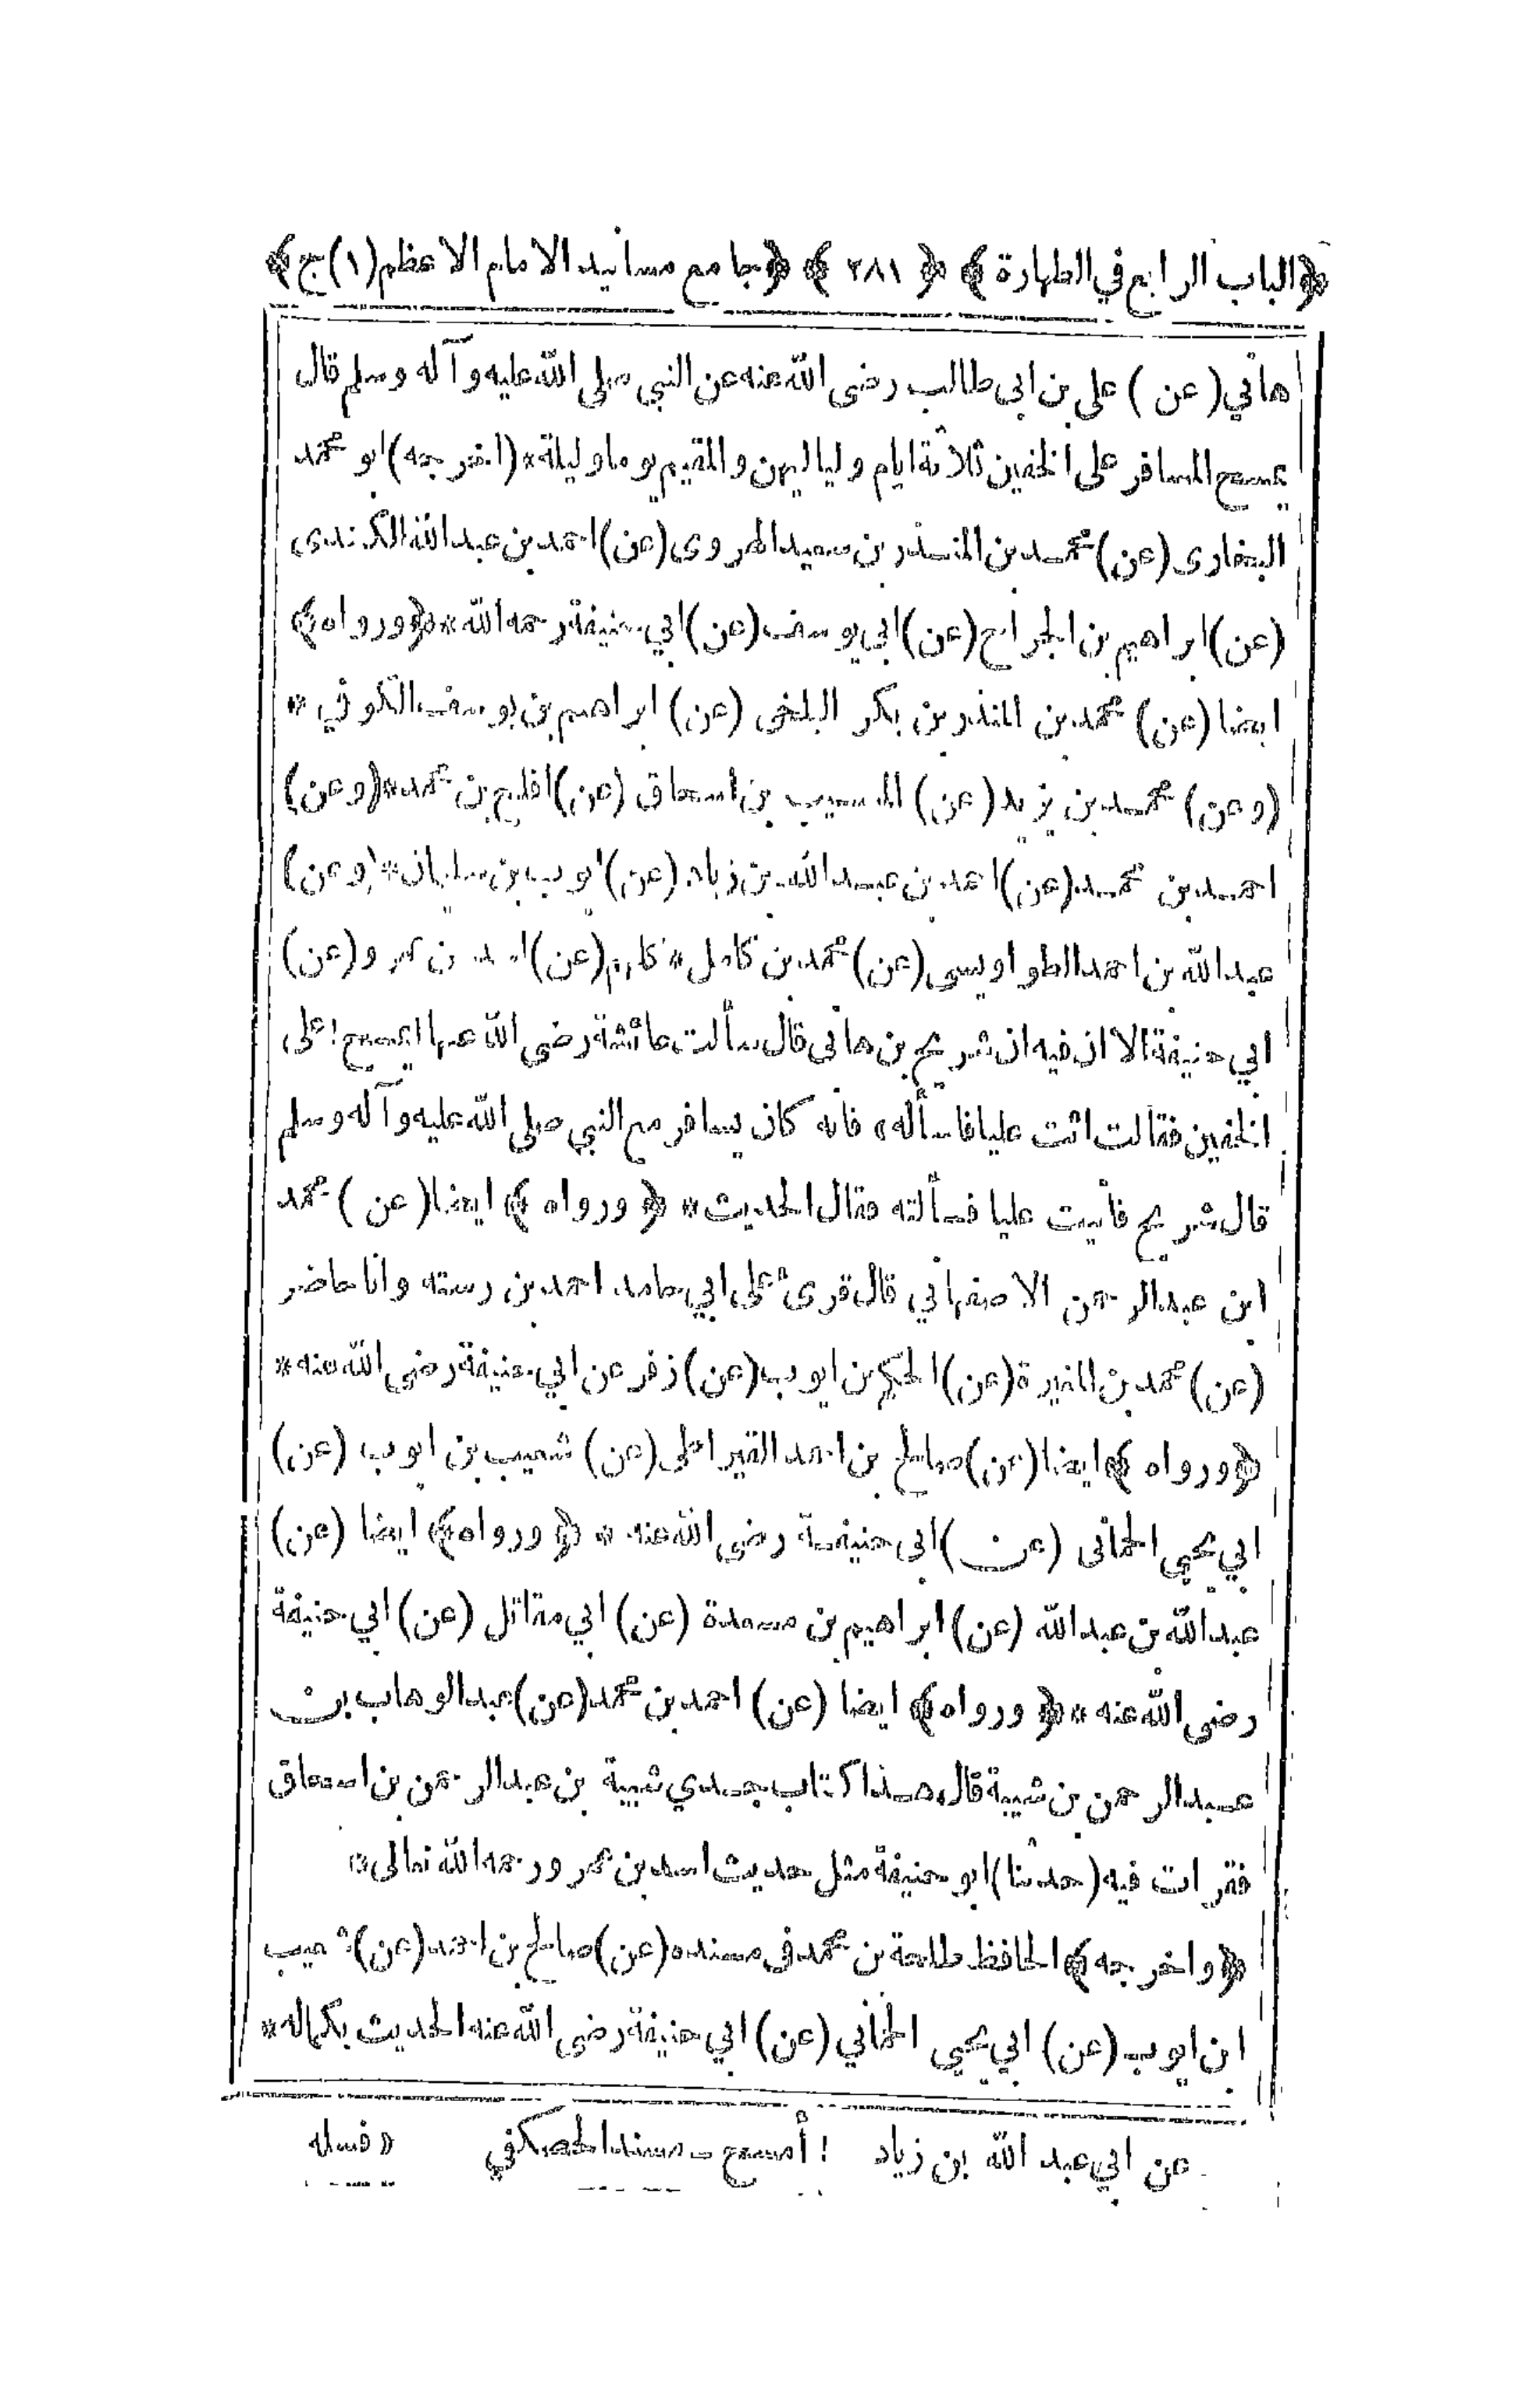 ﴿الباب الرابع في الطهارة﴾ ﴿٢٨١﴾ ﴿جامع مسانيد الامام الاعظم (١) ج﴾
هانٔي (عن) علي بن ابى طالب رضى الله عنه عن النبي صلى الله عليه وآله وسلم قال
يمسح المسافر على الخفين ثلاثة ايام ولياليهن والمقيم يوما وليلة * (اخرجه) ابو محمد
البخارى (عن) محمد بن المنذر بن سعيد الهروى (عن) احمد بن عبد الله الكندى
(عن) ابراهيم بن الجراح (عن) ابي يوسف (عن) ابي حنيفة رحمه الله * ﴿ورواه﴾
ايضا (عن) محمد بن المنذر بن بكر البلخى (عن) ابراهيم بن يوسف الكوفي *
(وعن) محمد بن يزيد (عن) المسيب بن اسحاق (عن) افلح بن محمد * (وعن)
احمد بن محمد (عن) احمد بن عبد الله بن زياد (عن) ايوب بن سليمان * (وعن)
عبد الله بن احمد الطواويسى (عن) محمد بن كامل * كلهم (عن) اسد بن عمرو (عن)
ابي حنيفة الا ان فيه ان شريح بن هانٔي قال سألت عائشة رضى الله عنها ايمسح ! على
الخفين فقالت ائت عليا فاسأله * فانه كان يسافر مع النبي صلى الله عليه وآله وسلم
قال شريح فأتيت عليا فسألته فقال الحديث * ﴿ورواه﴾ ايضا (عن) محمد
ابن عبد الرحمن الاصفهاني قال قرئ على ابي حامد احمد بن رسته وانا حاضر
(عن) محمد بن المغيرة (عن) الحكم بن ايوب (عن) زفر عن ابي حنيفة رضى الله عنه *
﴿ورواه﴾ ايضا (عن) صالح بن احمد القيراطى (عن) شعيب بن ايوب (عن)
ابي يحيى الحمانى (عن) ابى حنيفة رضى الله عنه * ﴿ورواه﴾ ايضا (عن)
عبد الله بن عبد الله (عن) ابراهيم بن مسعدة (عن) ابي مقاتل (عن) ابي حنيفة
رضى الله عنه * ﴿ورواه﴾ ايضا (عن) احمد بن محمد (عن) عبد الوهاب بن
عبد الرحمن بن شيبة قال هذا كتاب جدي شيبة بن عبد الرحمن بن اسحاق
فقرات فيه (حدثنا) ابو حنيفة مثل حديث اسد بن عمرو رحمه الله تعالى *
﴿واخرجه﴾ الحافظ طلحة بن محمد فى مسنده (عن) صالح بن احمد (عن) شعيب
ابن ايوب (عن) ابي يحيى الحماني (عن) ابي حنيفة رضى الله عنه الحديث بكماله *
عن ابي عبد الله بن زياد ! أمسح ـ مسند الحصكفي * فسله